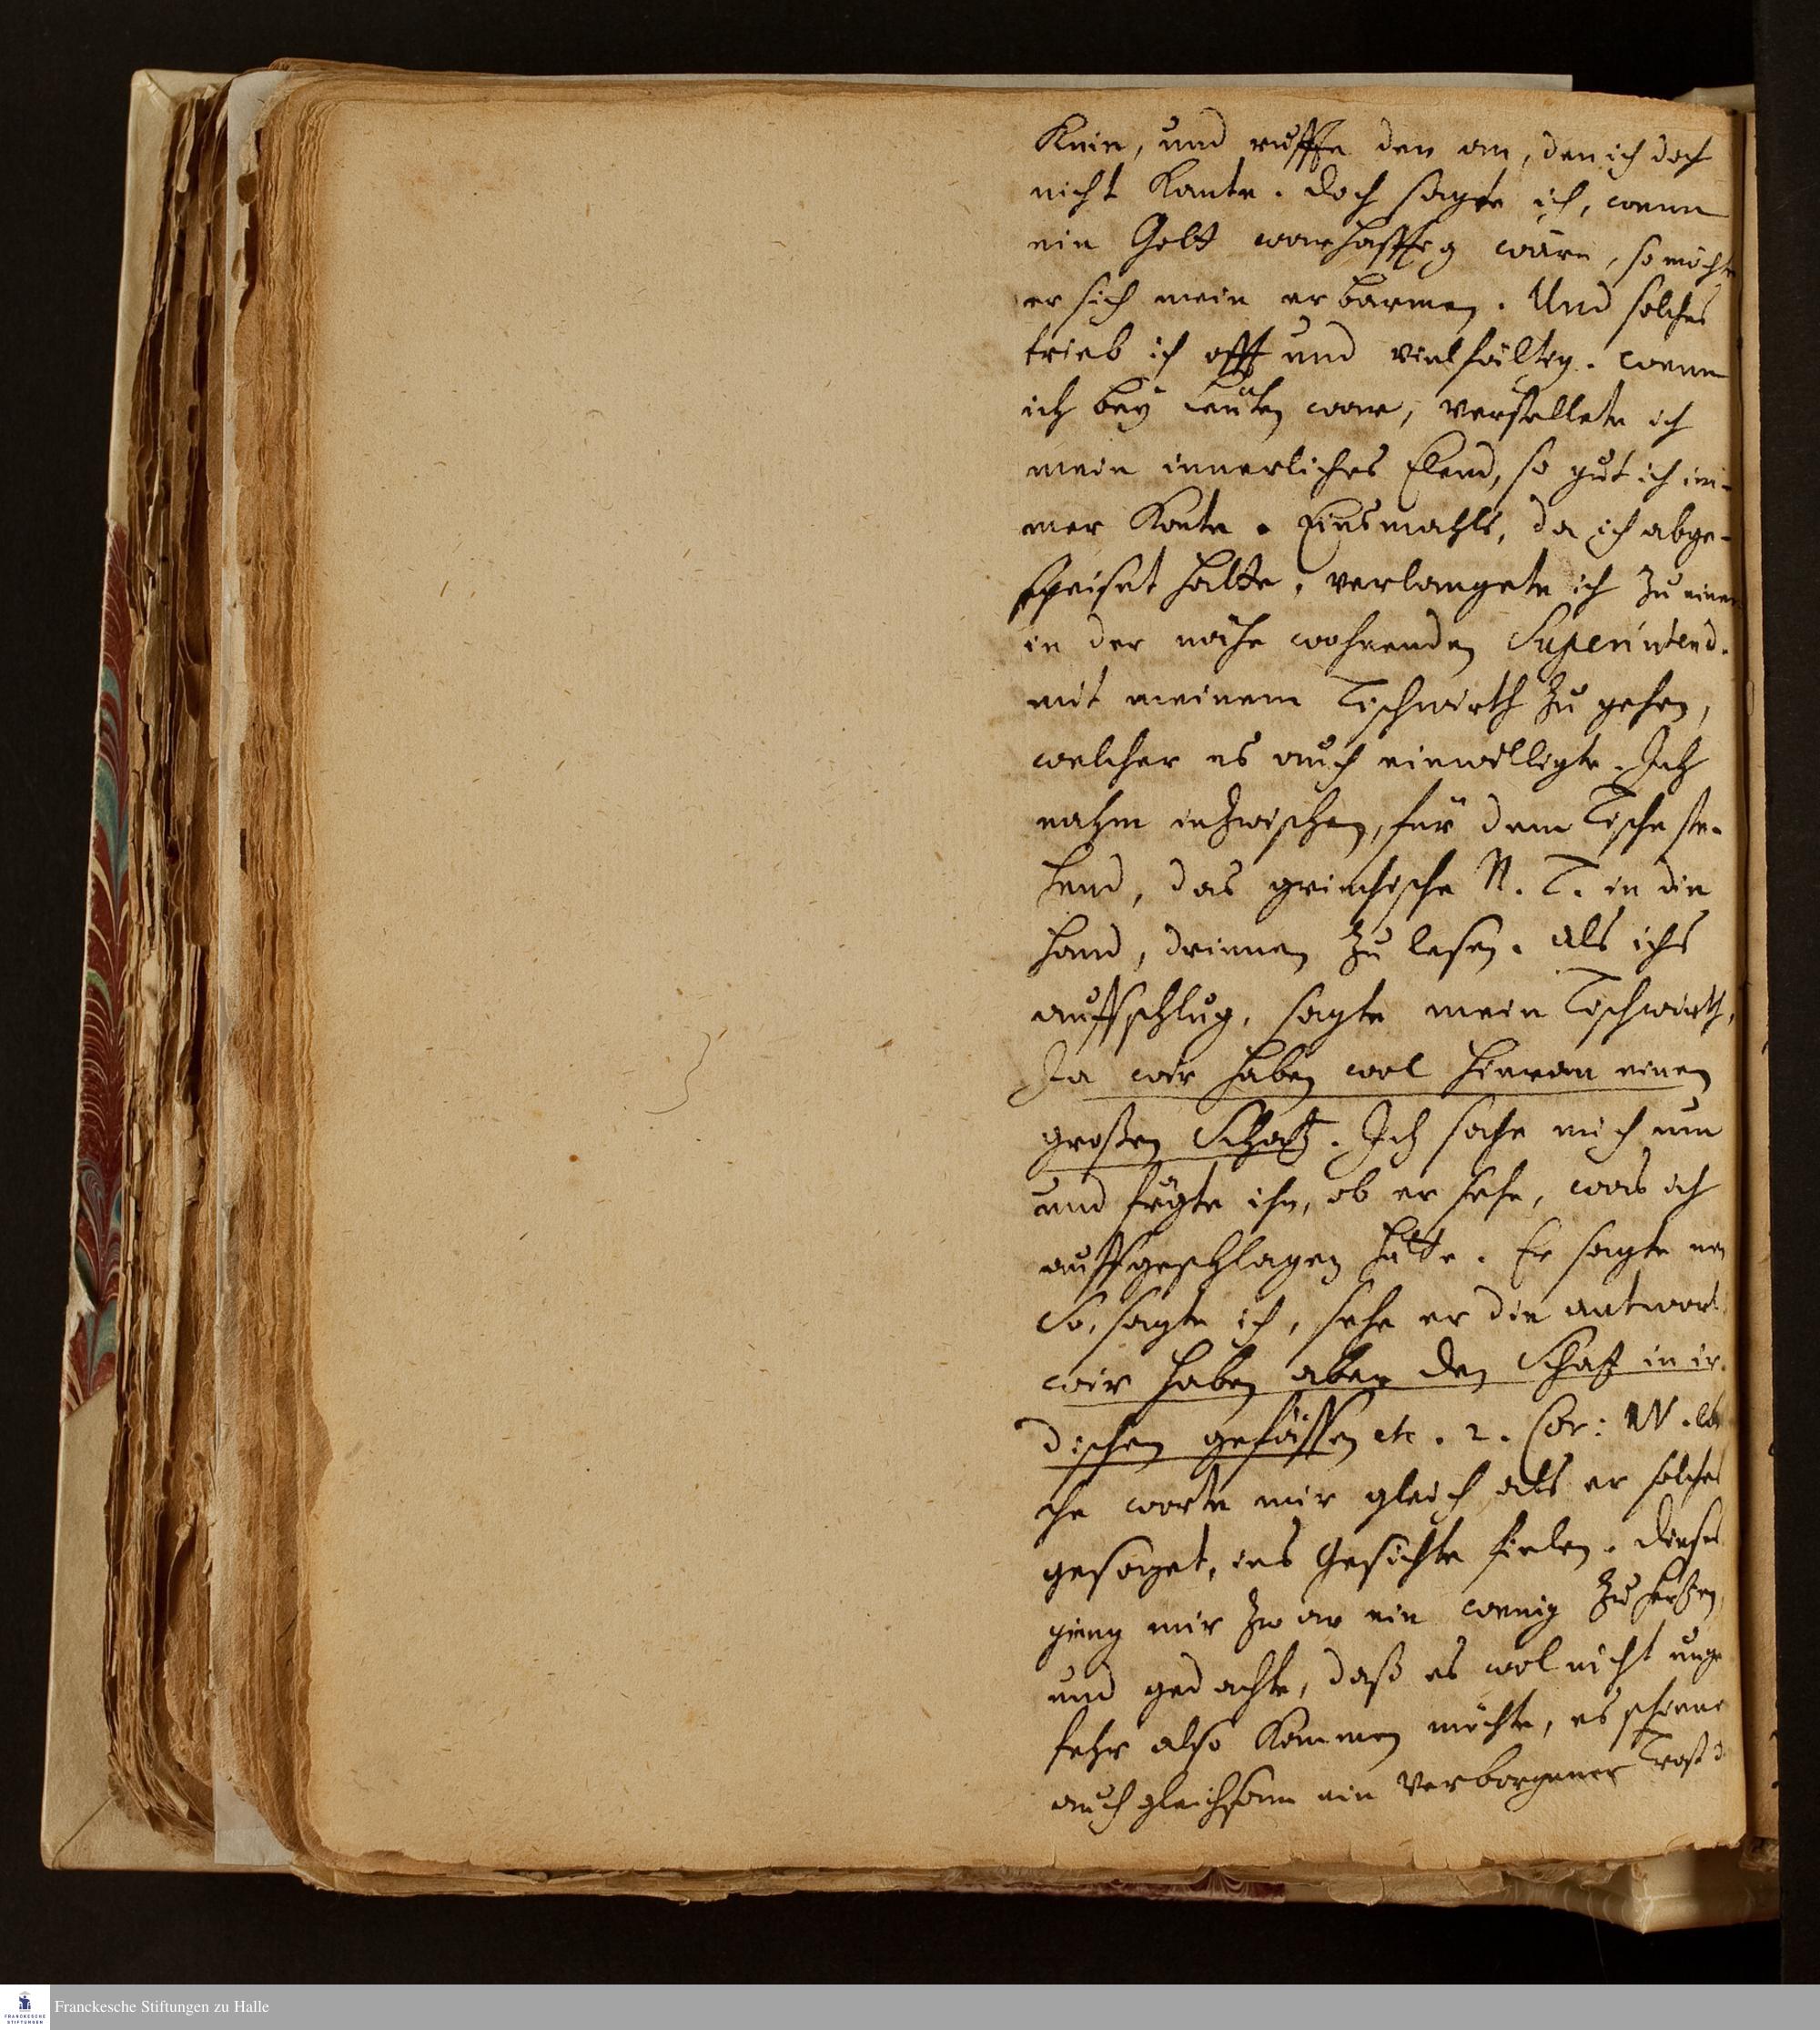 Knie, und ruffte den an, den ich doch
nicht kante. Doch sagte ich, wenn
ein Gott warhafftig wäre, so möchte
er sich mein erbarmen. Und solches
trieb ich offt und vielfältig. Wenn
ich bey Leuten war, verstellete ich
mein innerliches Elend, so gut ich im-
mer konte. Einsmahls, da ich abge-
speiset hatte, verlangete ich zu einem
in der nähe wohnenden Superintend.
mit meinem Tischwirth zu gehen,
welcher es auch einwilligte. Ich
nahm inzwischen, für dem Tische ste-
hend, das griechische N. T. in die
Hand, drinnen zu lesen. Als ichs
auffschlug, sagte mein Tischwirth,
Ja wir haben wol hieran einen
großen Schatz. Ich sahe mich um
und frägte ihn, ob er sehe, was ich
auffgeschlagen hätte. Er sagte nein
So, sagte ich, sehe er die antwort,
wir haben aber den Schatz in ir-
dischen gefässen etc. 2. Cor: IV.
che worte mir gleich als er solches
gesaget, ins Gesichte fielen. Dieses
gieng mir zwar ein wenig zu hertzen,
und gedachte, daß es wol nicht unge
fehr also kommen möchte, es schiene
auch gleichsam ein verborgener Trost
Franckesche Stiftungen zu Halle
FRANCKESCHE
STIFTUNGEN